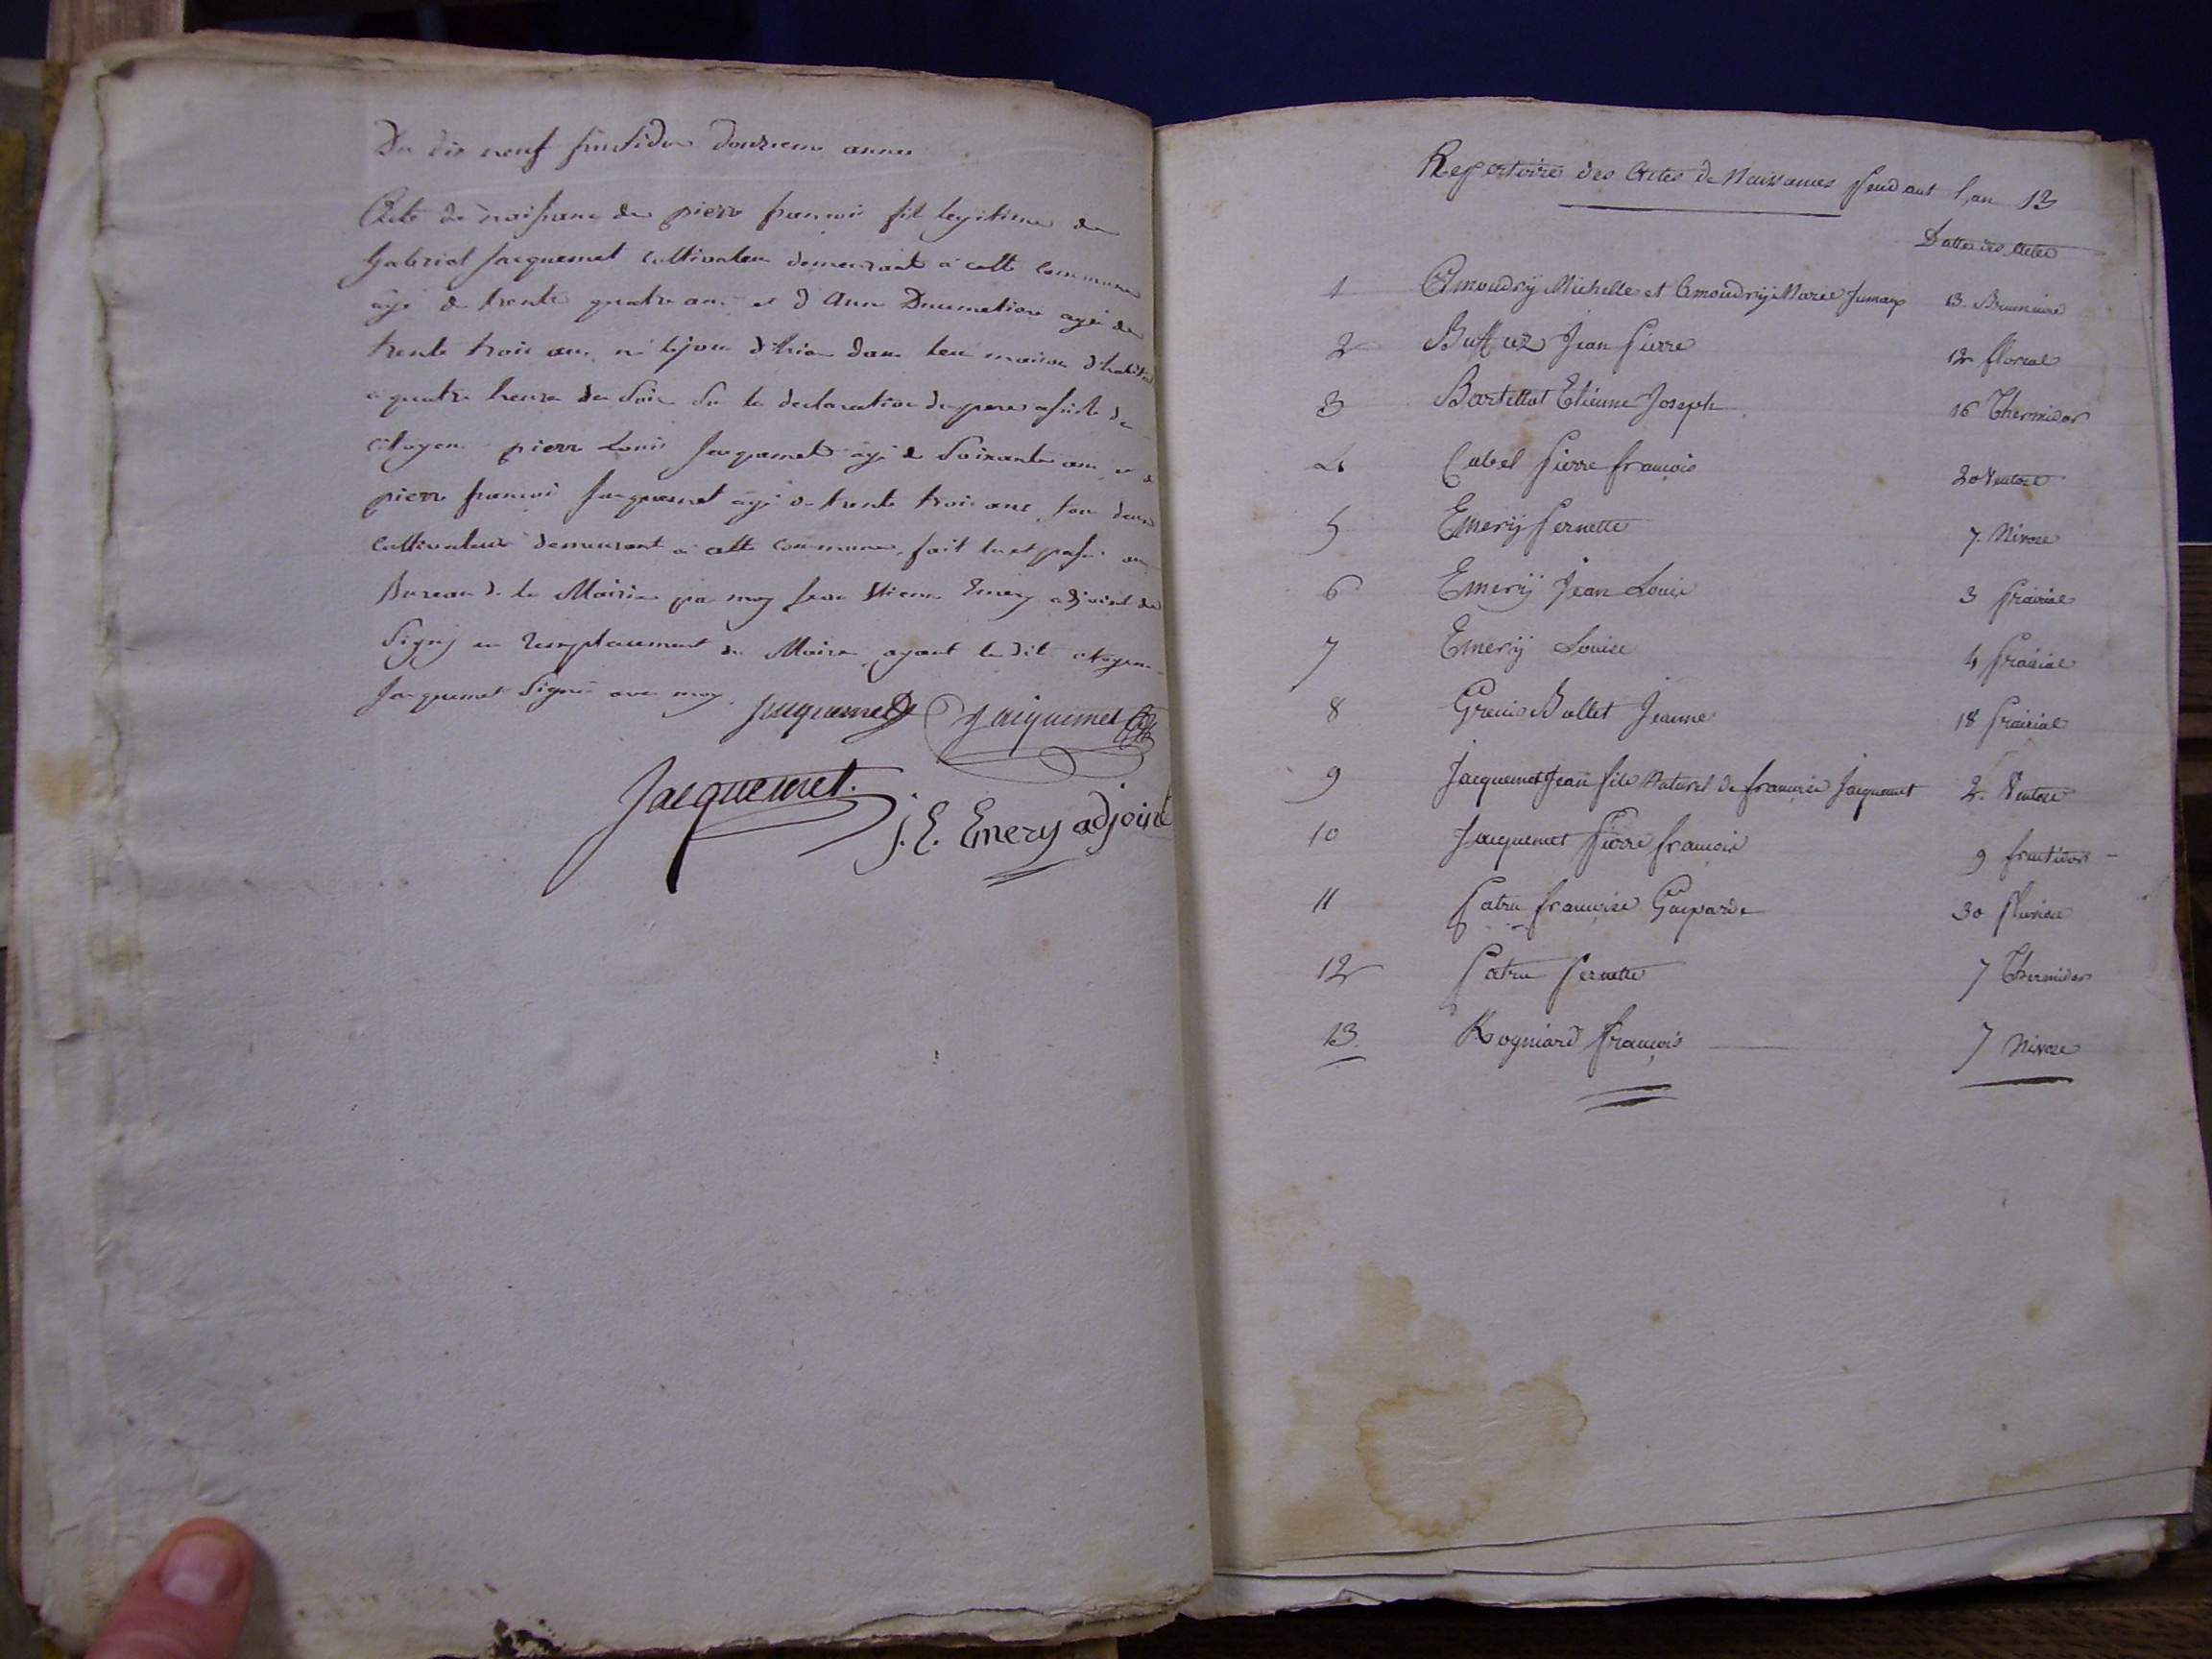 Du dix neuf fructidor douzieme annee
Acte de naissance de pierre francois fil legitime de
Gabriel Jacquemet cultivateur demeurant a cette commune
agé de trente quatre ans et d Anne Dumetiere agé de
trente trois ans né le jour d'hier dans leur maison d'habit
a quatre heures du soir sur la declaration du pere assisté de
citoyen pierre Louis Jacquemet agé de soixante ans et de
pierre francois Jacquemet agé de trente trois ans tou deux
cultivateurs demeurant a cette commune, fait lu et passé au
Bureau de la Mairie par moy Jean Etienne Emery adjoint de
Signy en remplacement du Maire ayant le dit citoyens
Jacquemet signé avec moy. Jacquemet Jaiquemet
Jacquemet.
J. E. Emery adjoint
Repertoire des Actes de Naissances pendant l'an 13
Dattes des Actes
1 Amoudry Michelle et Amoudry Marie Jumaux 13. Brumaire
2 Buffuez Jean Pierre 12 floreal
3 Bartellat Etienne Joseph 16 Thermidor
4 Cabel Pierre francois 20 Ventose
5 Emery Pernette 7. Nivose
6 Emery Jean Louis 3 prairial
7 Emery Louise 4 prairial
8 Grenié Ballet Jeanne 18 prairial
9 Jacquemet Jean fils Naturel de francoise Jacquemet 2. Ventose
10 Jacquemet Pierre francois 9 fructidor
11 Patru francoise Gasparde 30 pluviose
12 Patru Pernette 7 Thermidor
13. Rogniard francois 7 Nivose